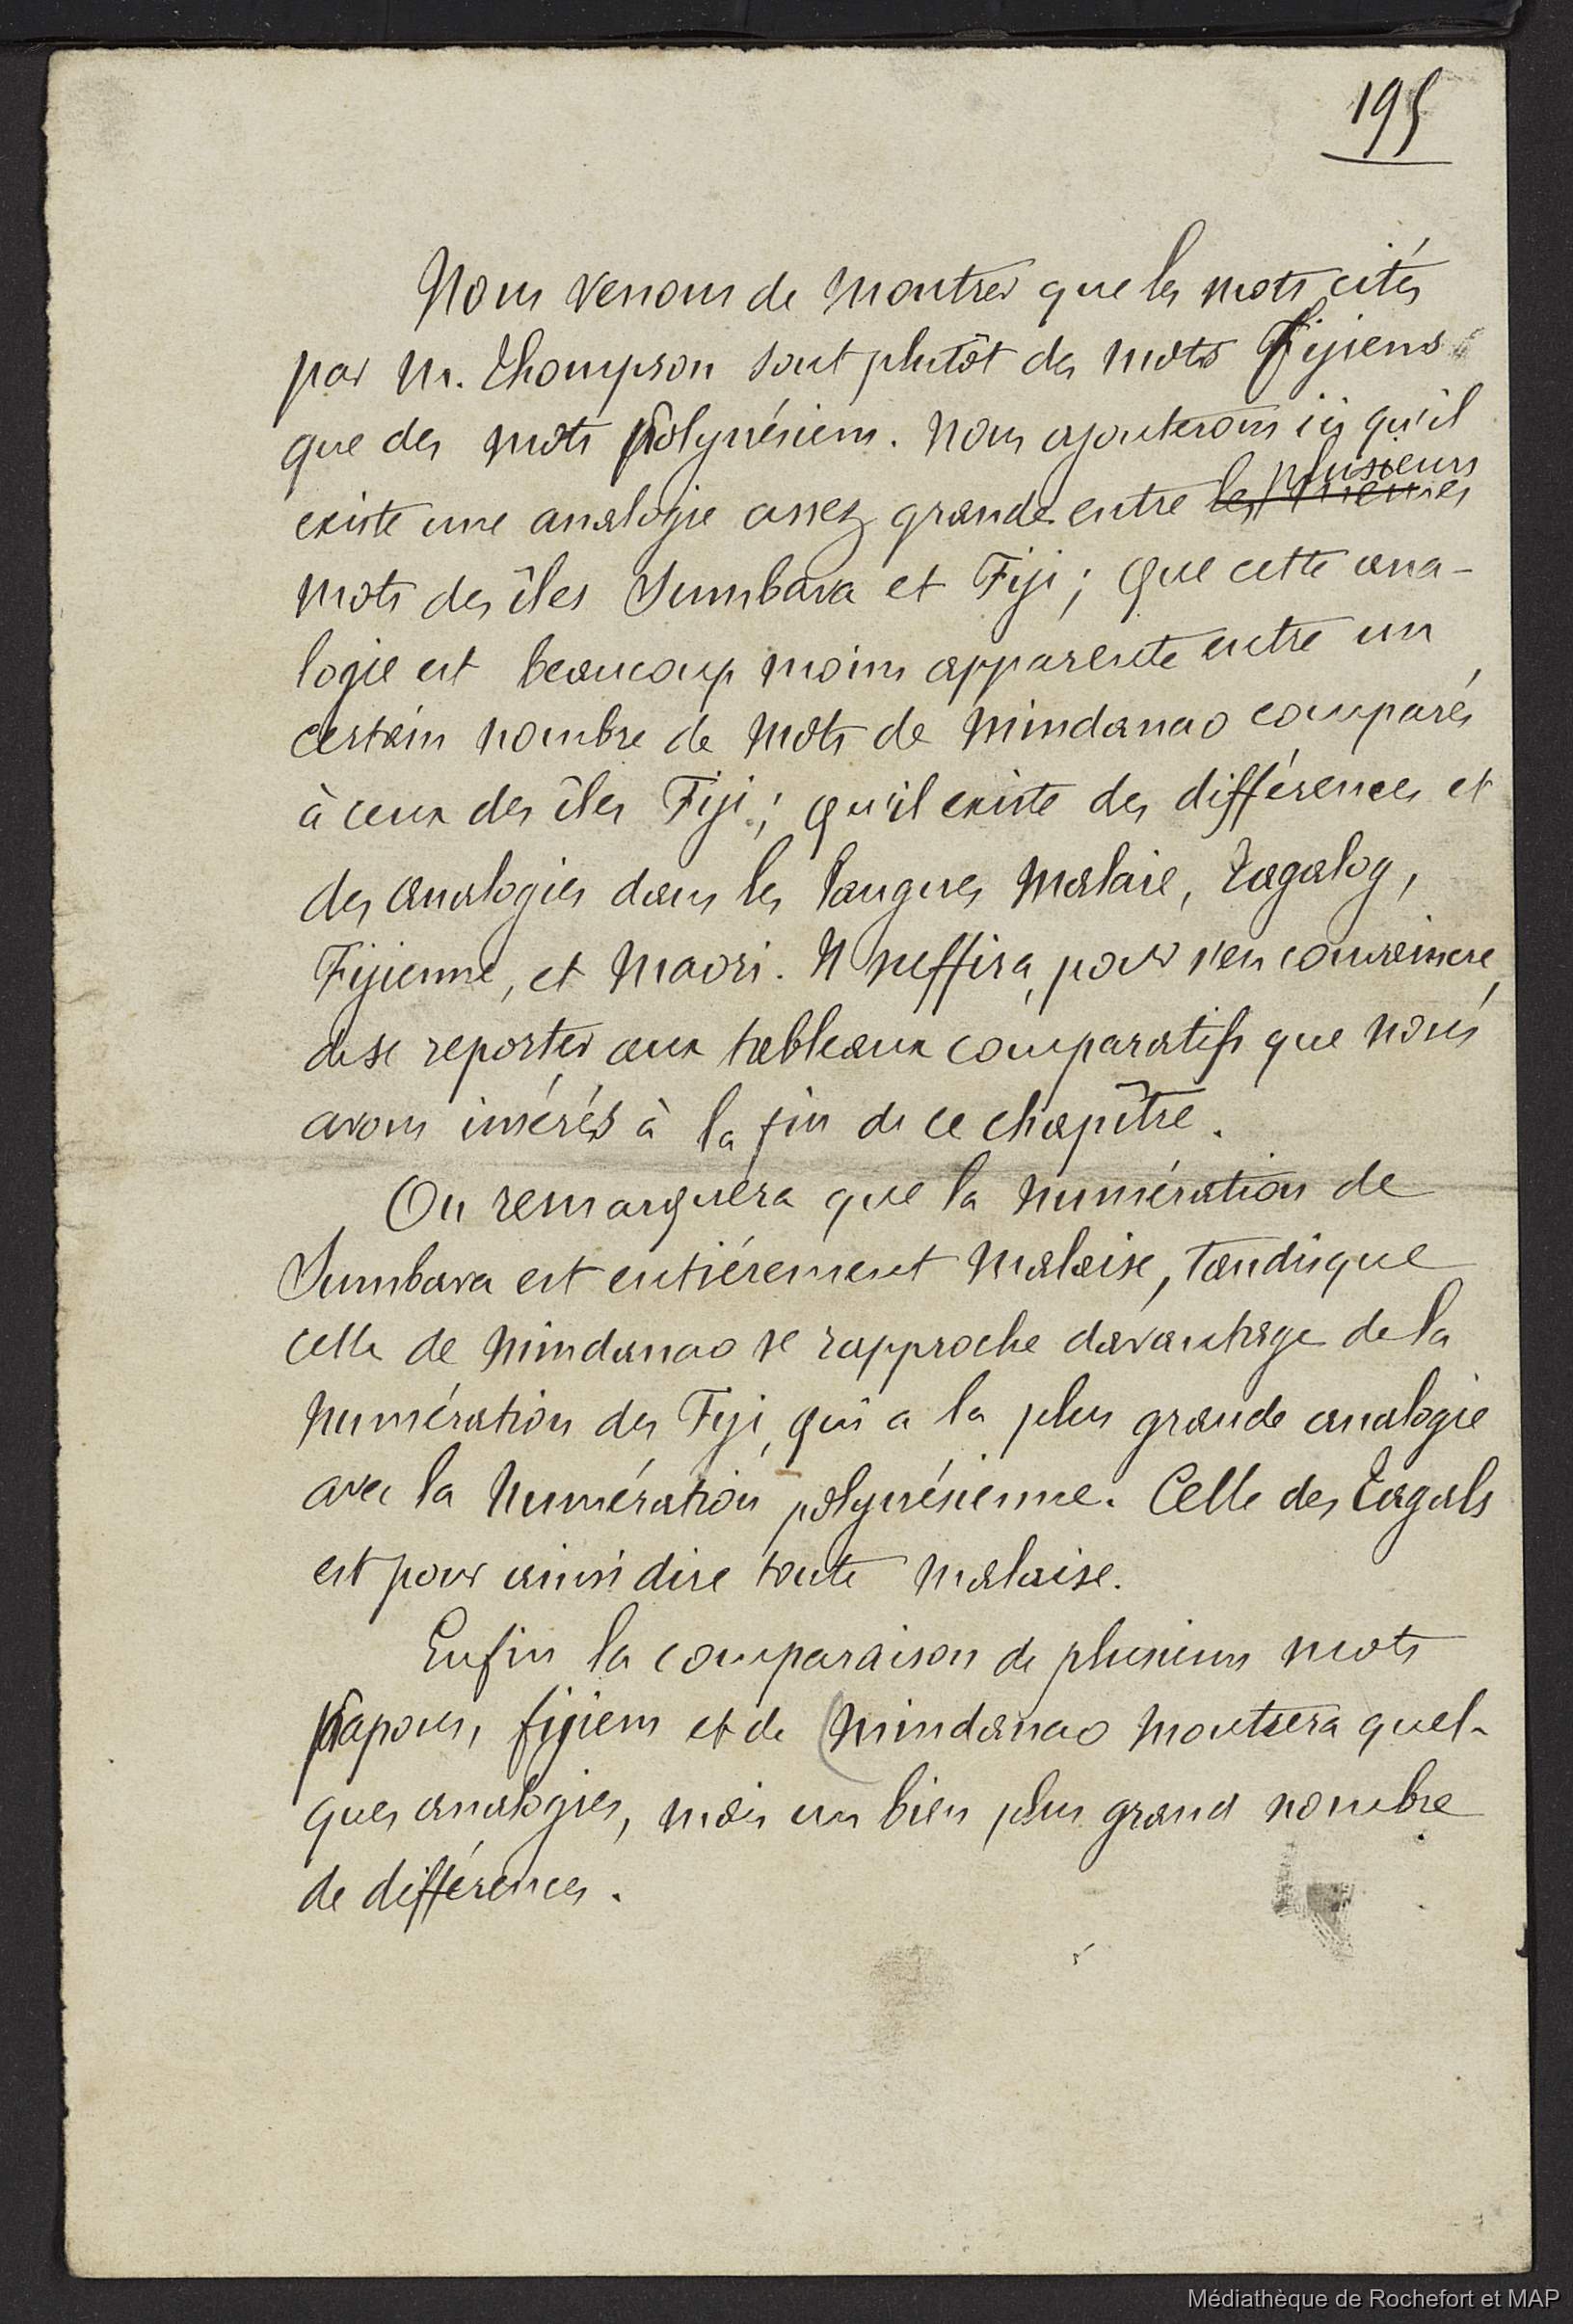 195
Nous venons de montrer que les mots cités
par M. Thompson sont plutôt des mots Fijiens
que des mots polynésiens. Nous ajouterons ici qu'il
plusieurs
existe une analogie assez grande entre les mêmes
mots des îles Sumbava et Fiji ; que cette ana-
logie est beaucoup moins apparente entre un
certain nombre de mots de Mindanao comparés
à ceux des îles Fiji ; qu'il existe des différences et
des analogies dans les langues Malaie, Tagalog,
Fijienne, et Maori. Il suffira, pour s'en convaincre,
de se reporter aux tableaux comparatifs que nous
avons insérés à la fin de ce chapître.
On remarquera que la numération de
Sumbava est entiérement Malaise, tandisque
celle de Mindanao se rapproche davantage de la
numération des Fiji, qui a la plus grande analogie
avec la numération polynésienne. Celle des Tagals
est pour ainsi dire toute Malaise.
Enfin la comparaison de plusieurs mots
papous, fijiens et de Mindanao montrera quel-
ques analogies, mais un bien plus grand nombre
de différences.
Médiathèque de Rochefort et MAP